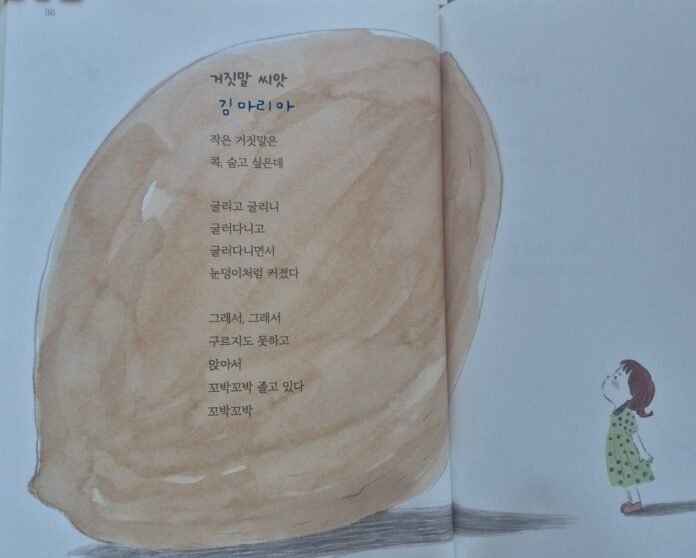 36
거짓말 씨앗
김마리아
작은 거짓말은
콕, 숨고 싶은데
굴리고 굴리니
굴러다니고
굴러다니면서
눈덩이처럼 커졌다
그래서, 그래서
구르지도 못하고
앉아서
꼬박꼬박 졸고 있다
꼬박꼬박